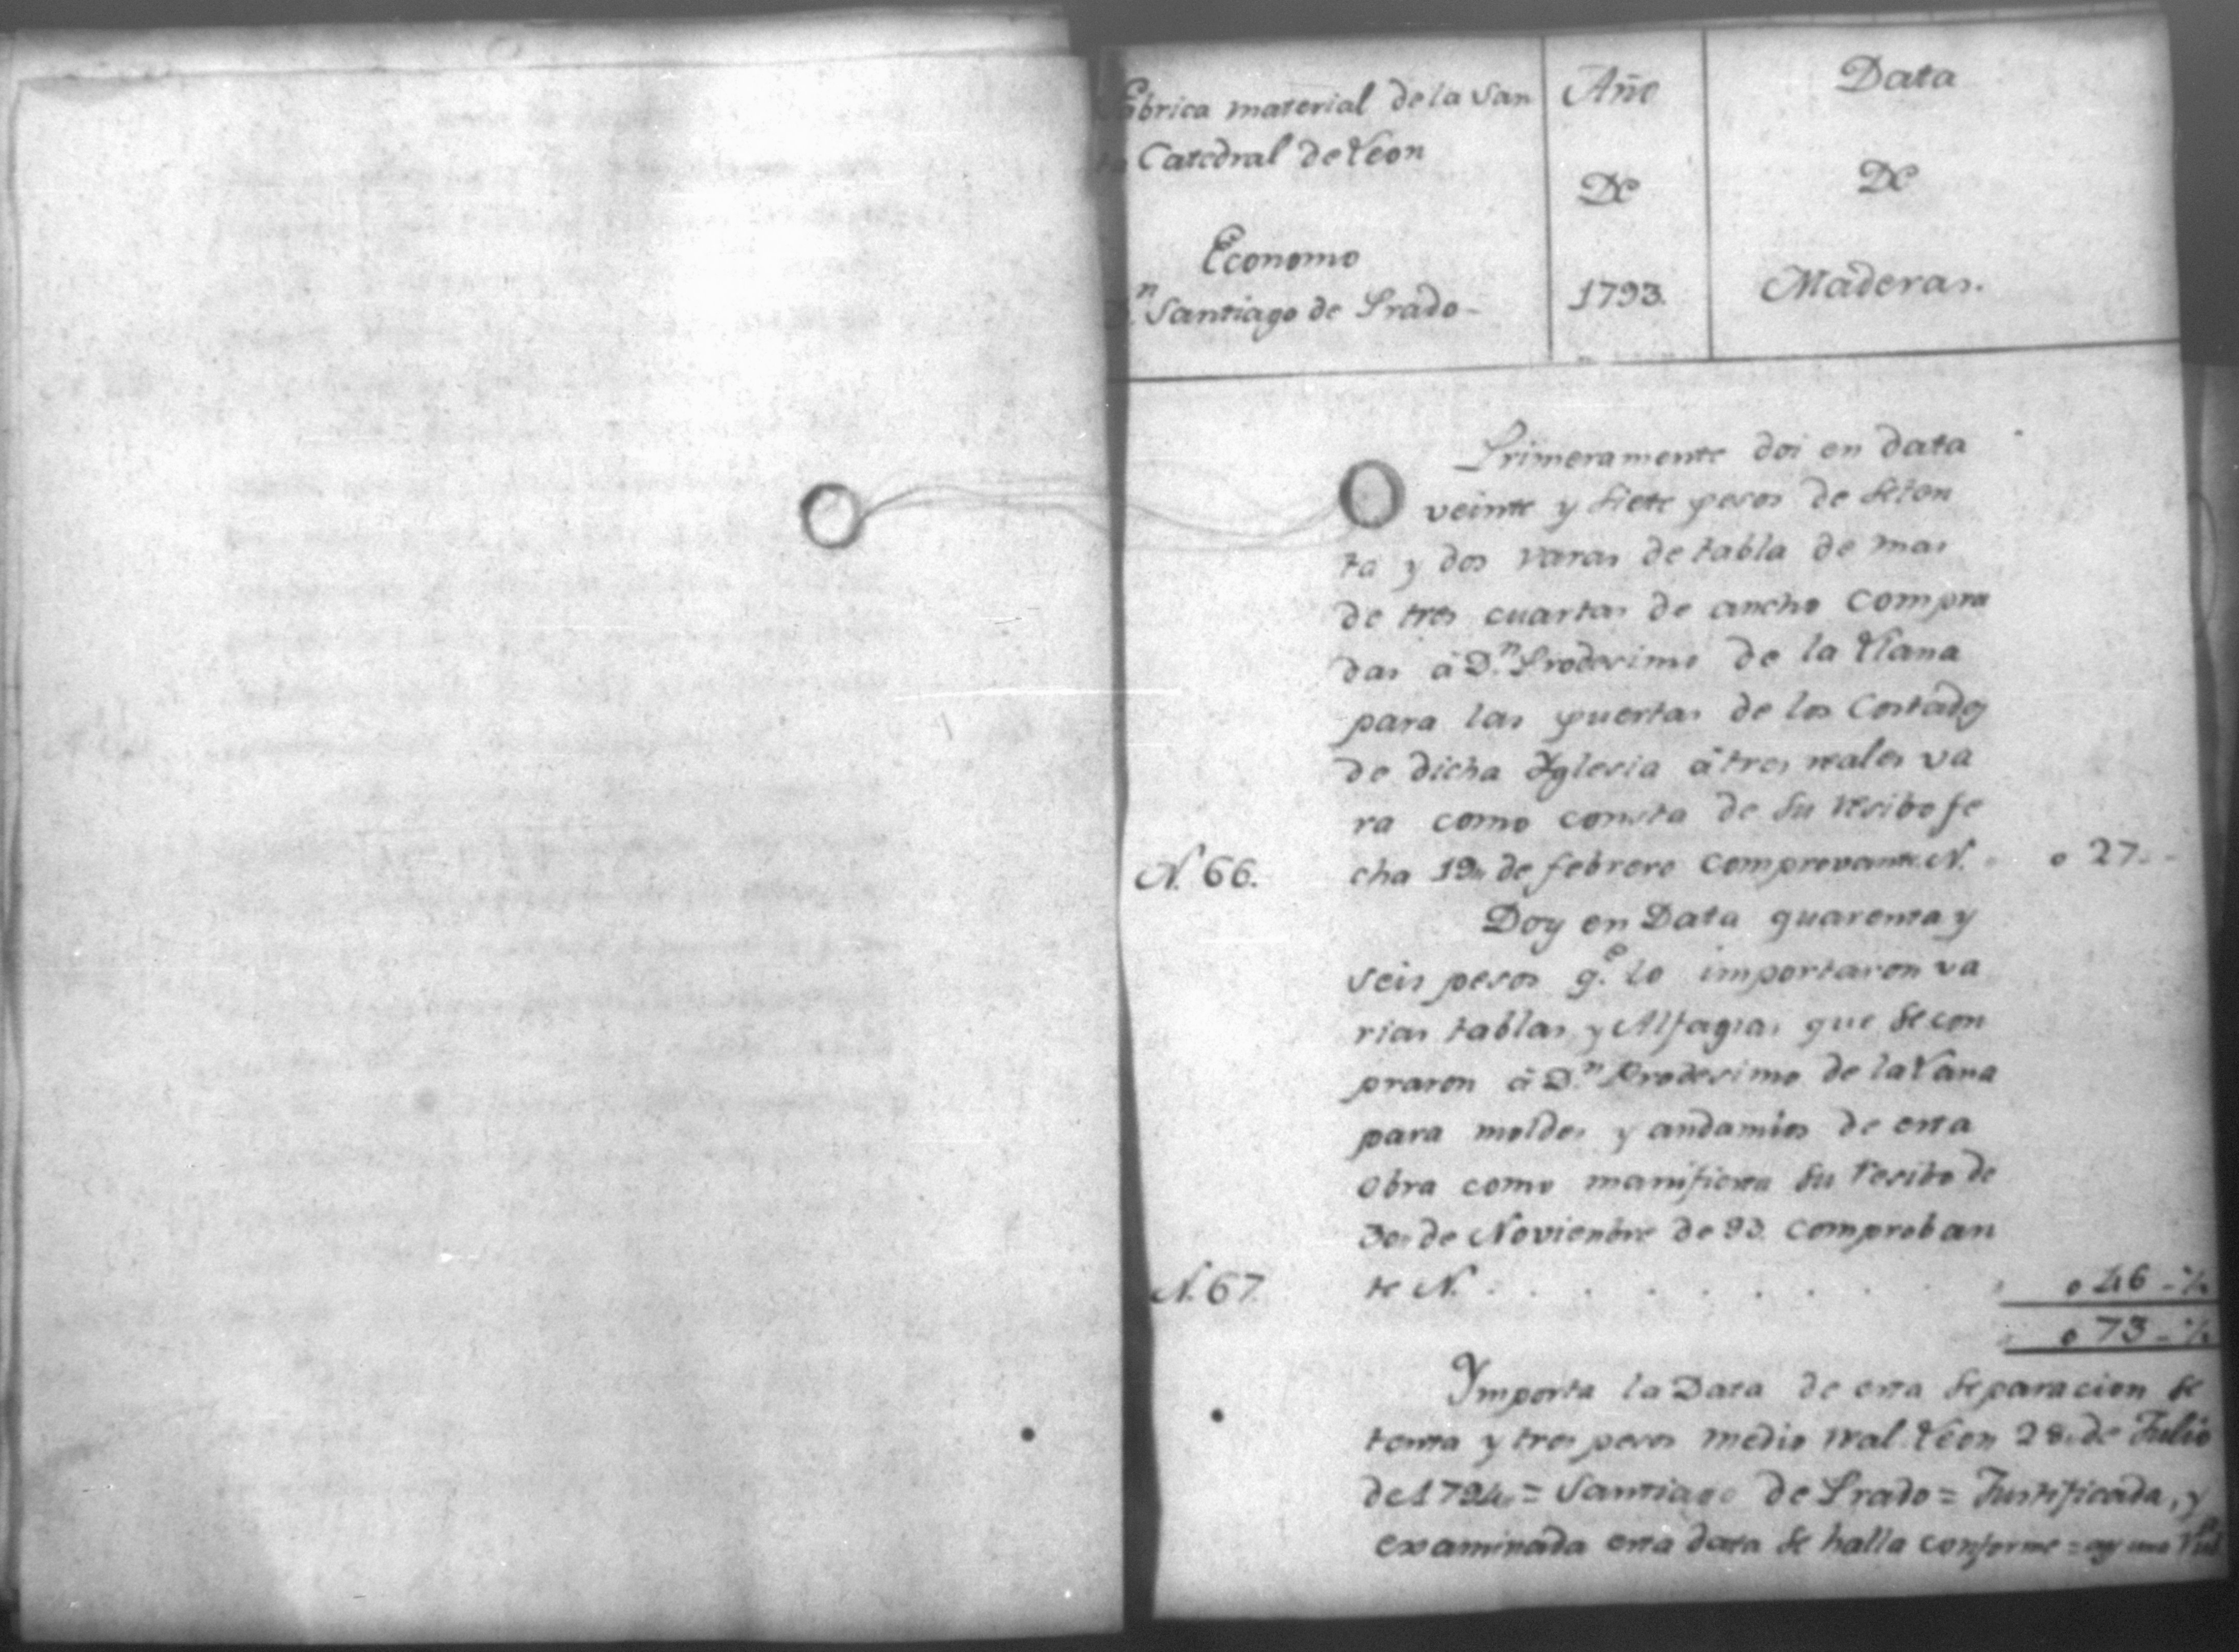 Fabrica material de la San
ta Catedral de Leon
Economo
D.n Santiago de Prado
Año
De
1793.
Data
De
Maderas.
Primeramente doi en data
veinte y siete pesos de seten
ta y dos varas de tabla de mas
de tres cuartas de ancho compra
das â D.n Prodesimo de la Llana
para las puertas de los Costados
de dicha Yglesia â tres reales va
ra como consta de su resibo fe
N. 66. cha 19,, de febrero comprovante N. o 27. -
Doy en Data quarenta y
seis pesos q.e lo importaron va
rias tablas y Alfagias que se con
praron â D.n Prodesimo de la Llana
para moldes y andamios de esta
obra como manifiesta su resibo de
30,, de Noviembre de 93. comproban
N. 67. te N. . . . . . . . . . o 46 - ½
o 73 - ½
Ymporta la Data de esta separacion se
tenta y tres pesos medio real. Leon 28,, de Julio
de 1794,, = Santiago de Prado = Justificada, y
examinada esta data se halla conforme = ay una